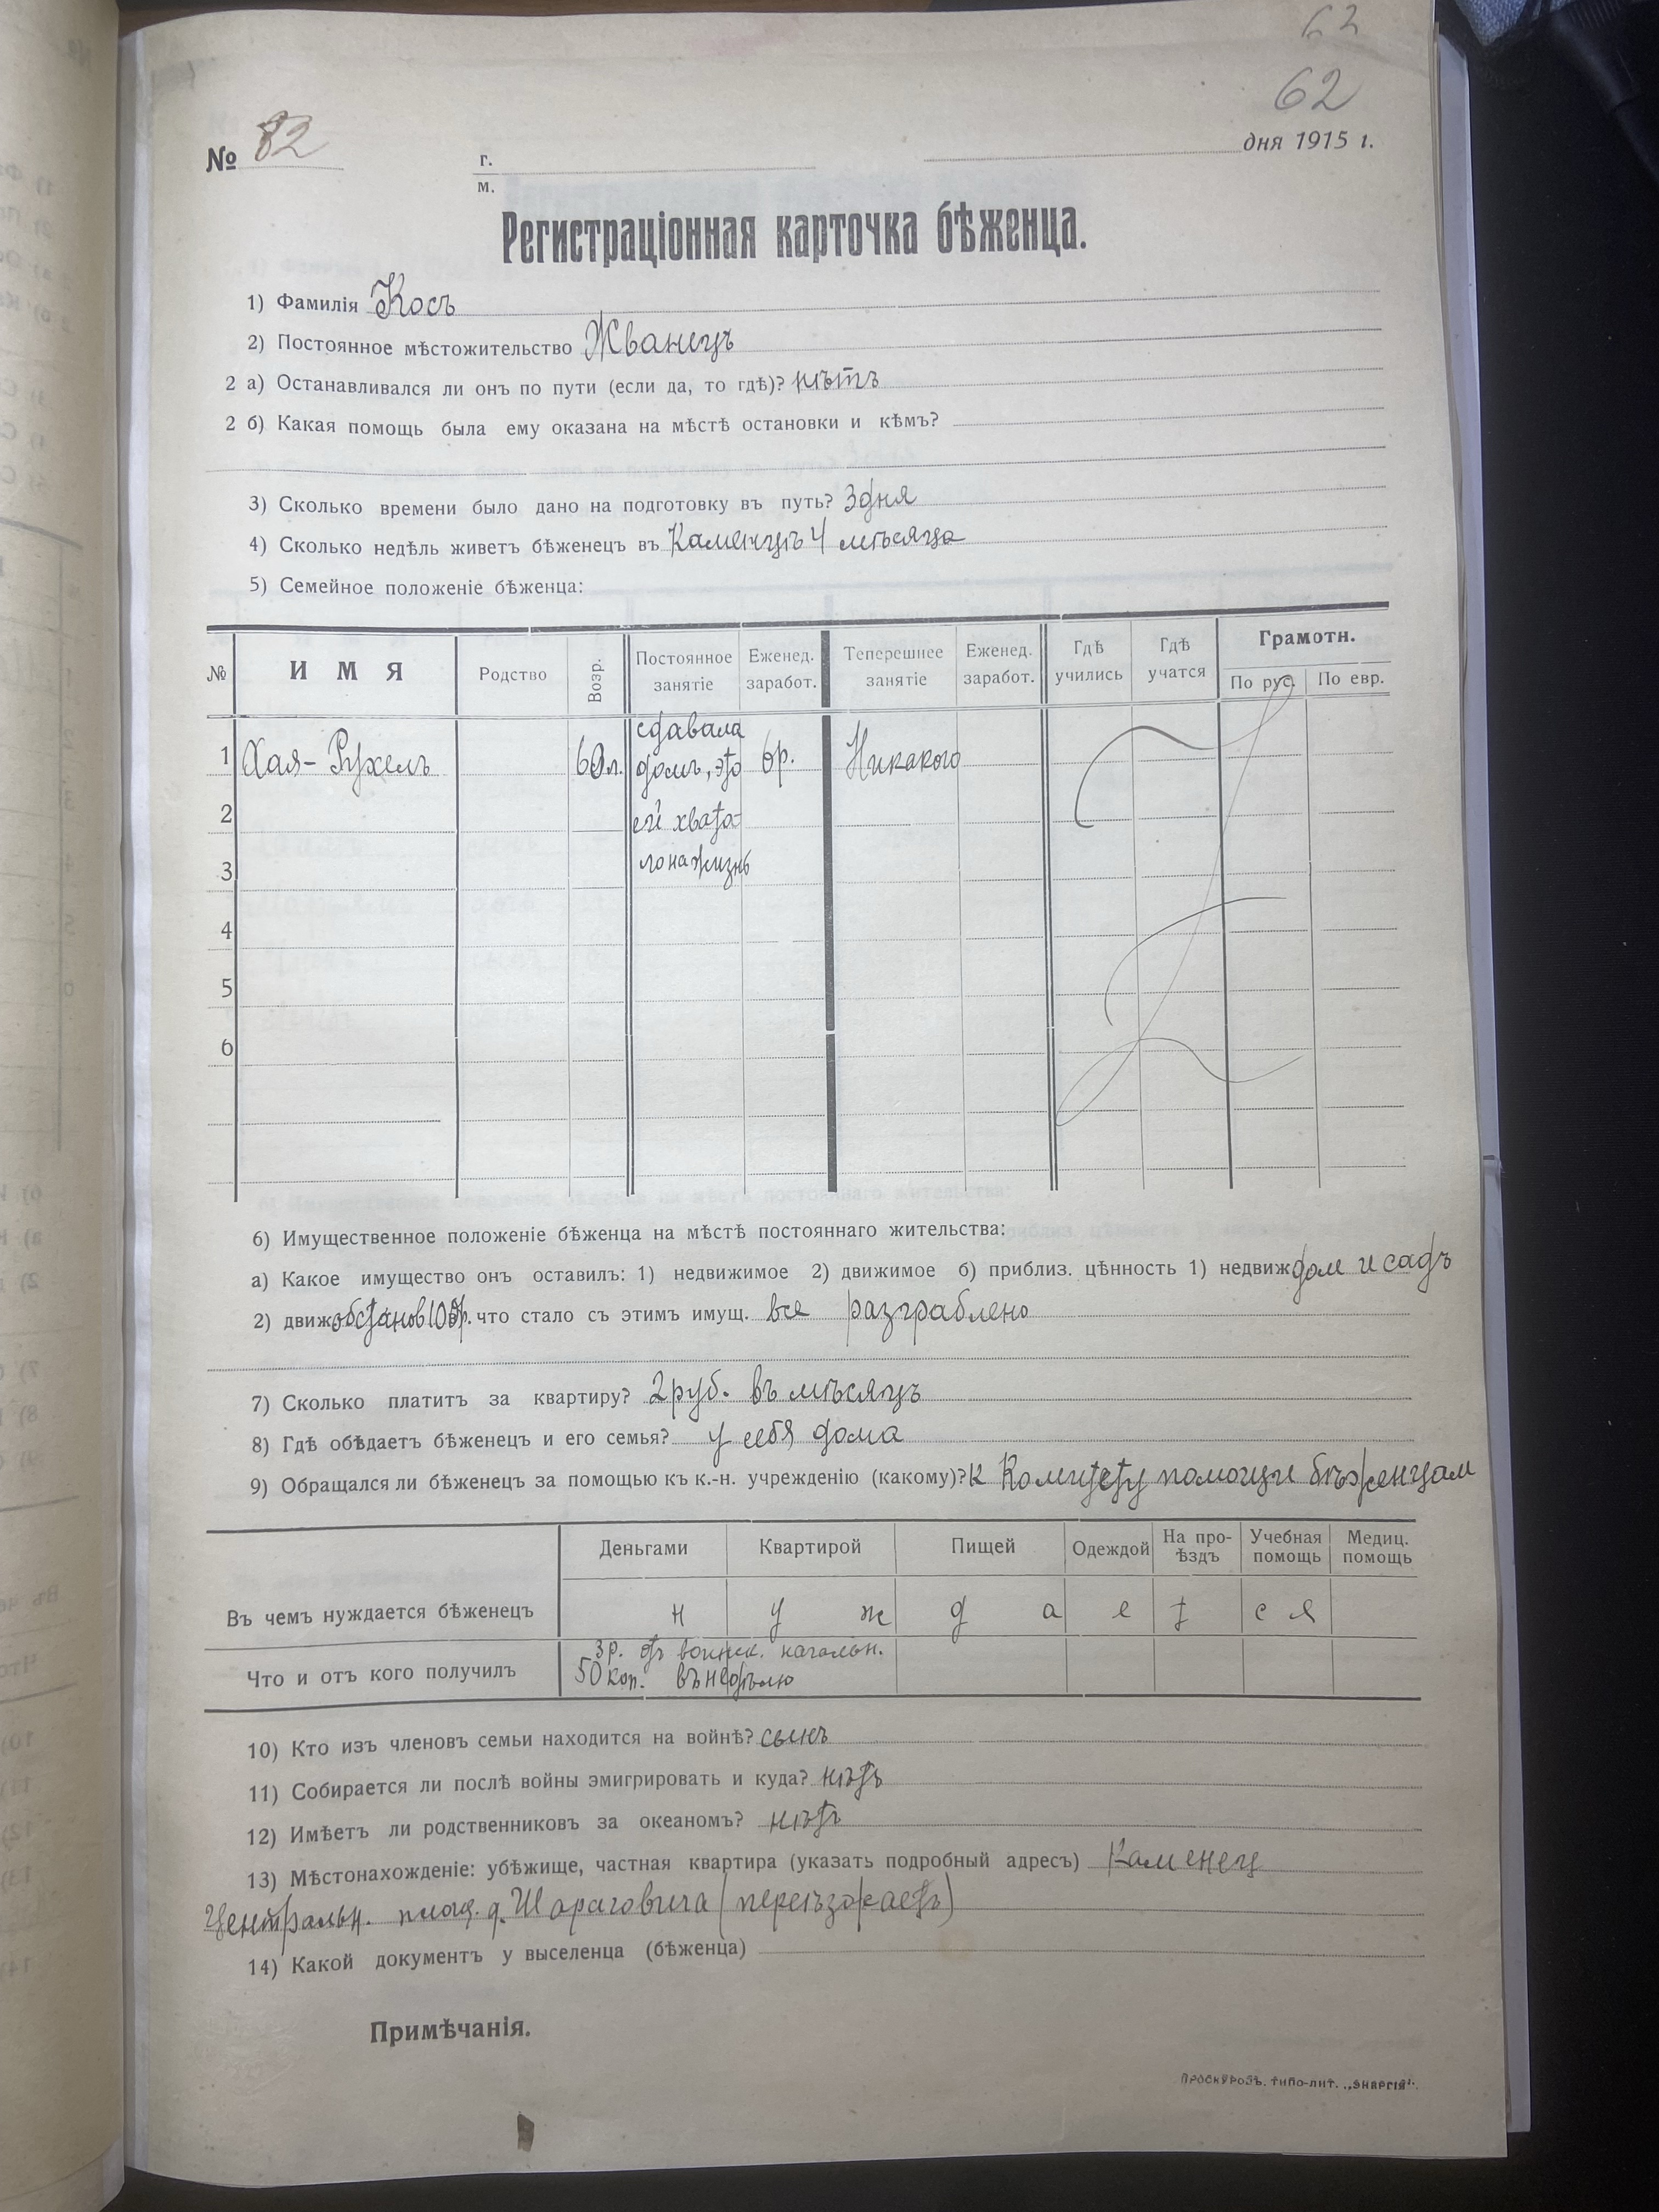 62
62
№ 82
г.
м.
дня 1915 г.
Регистраціонная карточка бѣженца.
1) Фамилія Косъ
2) Постоянное мѣстожительство Жванецъ
2 а) Останавливался ли онъ по пути (если да, то гдѣ)? нѣтъ
2 б) Какая помощь была ему оказана на мѣстѣ остановки и кѣмъ?
3) Сколько времени было дано на подготовку въ путь? 3 дня
4) Сколько недѣль живетъ бѣженецъ въ Каменцѣ 4 мѣсяца
5) Семейное положеніе бѣженца:
№ ИМЯ Родство Возр. Постоянное занятіе Еженед. заработ. Теперешнее занятіе Еженед. заработ. Гдѣ учились Гдѣ учатся Грамотн. По рус. По евр.
1 Хая-Рухель 60л. сдавала домъ, это ей хвата- ло на жизнь 6р. Никакого
2
3
4
5
6
6) Имущественное положеніе бѣженца на мѣстѣ постояннаго жительства:
а) Какое имущество онъ оставилъ: 1) недвижимое 2) движимое б) приблиз. цѣнность 1) недвиж дом и садъ
2) движ. обстанов 100р. что стало съ этимъ имущ. все разграблено
7) Сколько платитъ за квартиру? 2 руб. въ мѣсяцъ
8) Гдѣ обѣдаетъ бѣженецъ и его семья? у себя дома
9) Обращался ли бѣженецъ за помощью къ к.-н. учрежденію (какому)? к Комитету помощи бѣженцам
Деньгами Квартирой Пищей Одеждой На про-ѣздъ Учебная помощь Медиц. помощь
Въ чемъ нуждается бѣженецъ н у ж д а е т с я
Что и отъ кого получилъ 3р. отъ воинск. начальн.
50 коп. въ недѣлю
10) Кто изъ членовъ семьи находится на войнѣ? сынъ
11) Собирается ли послѣ войны эмигрировать и куда? нѣтъ
12) Имѣетъ ли родственниковъ за океаномъ? нѣтъ
13) Мѣстонахожденіе: убѣжище, частная квартира (указать подробный адресъ) Каменец
Центральн. площ. д. Шараговича (переѣзжаетъ)
14) Какой документъ у выселенца (бѣженца)
Примѣчанія.
ПРОСКУРОВЪ. ТИПО-ЛИТ. „ЭНЕРГІЯ“.